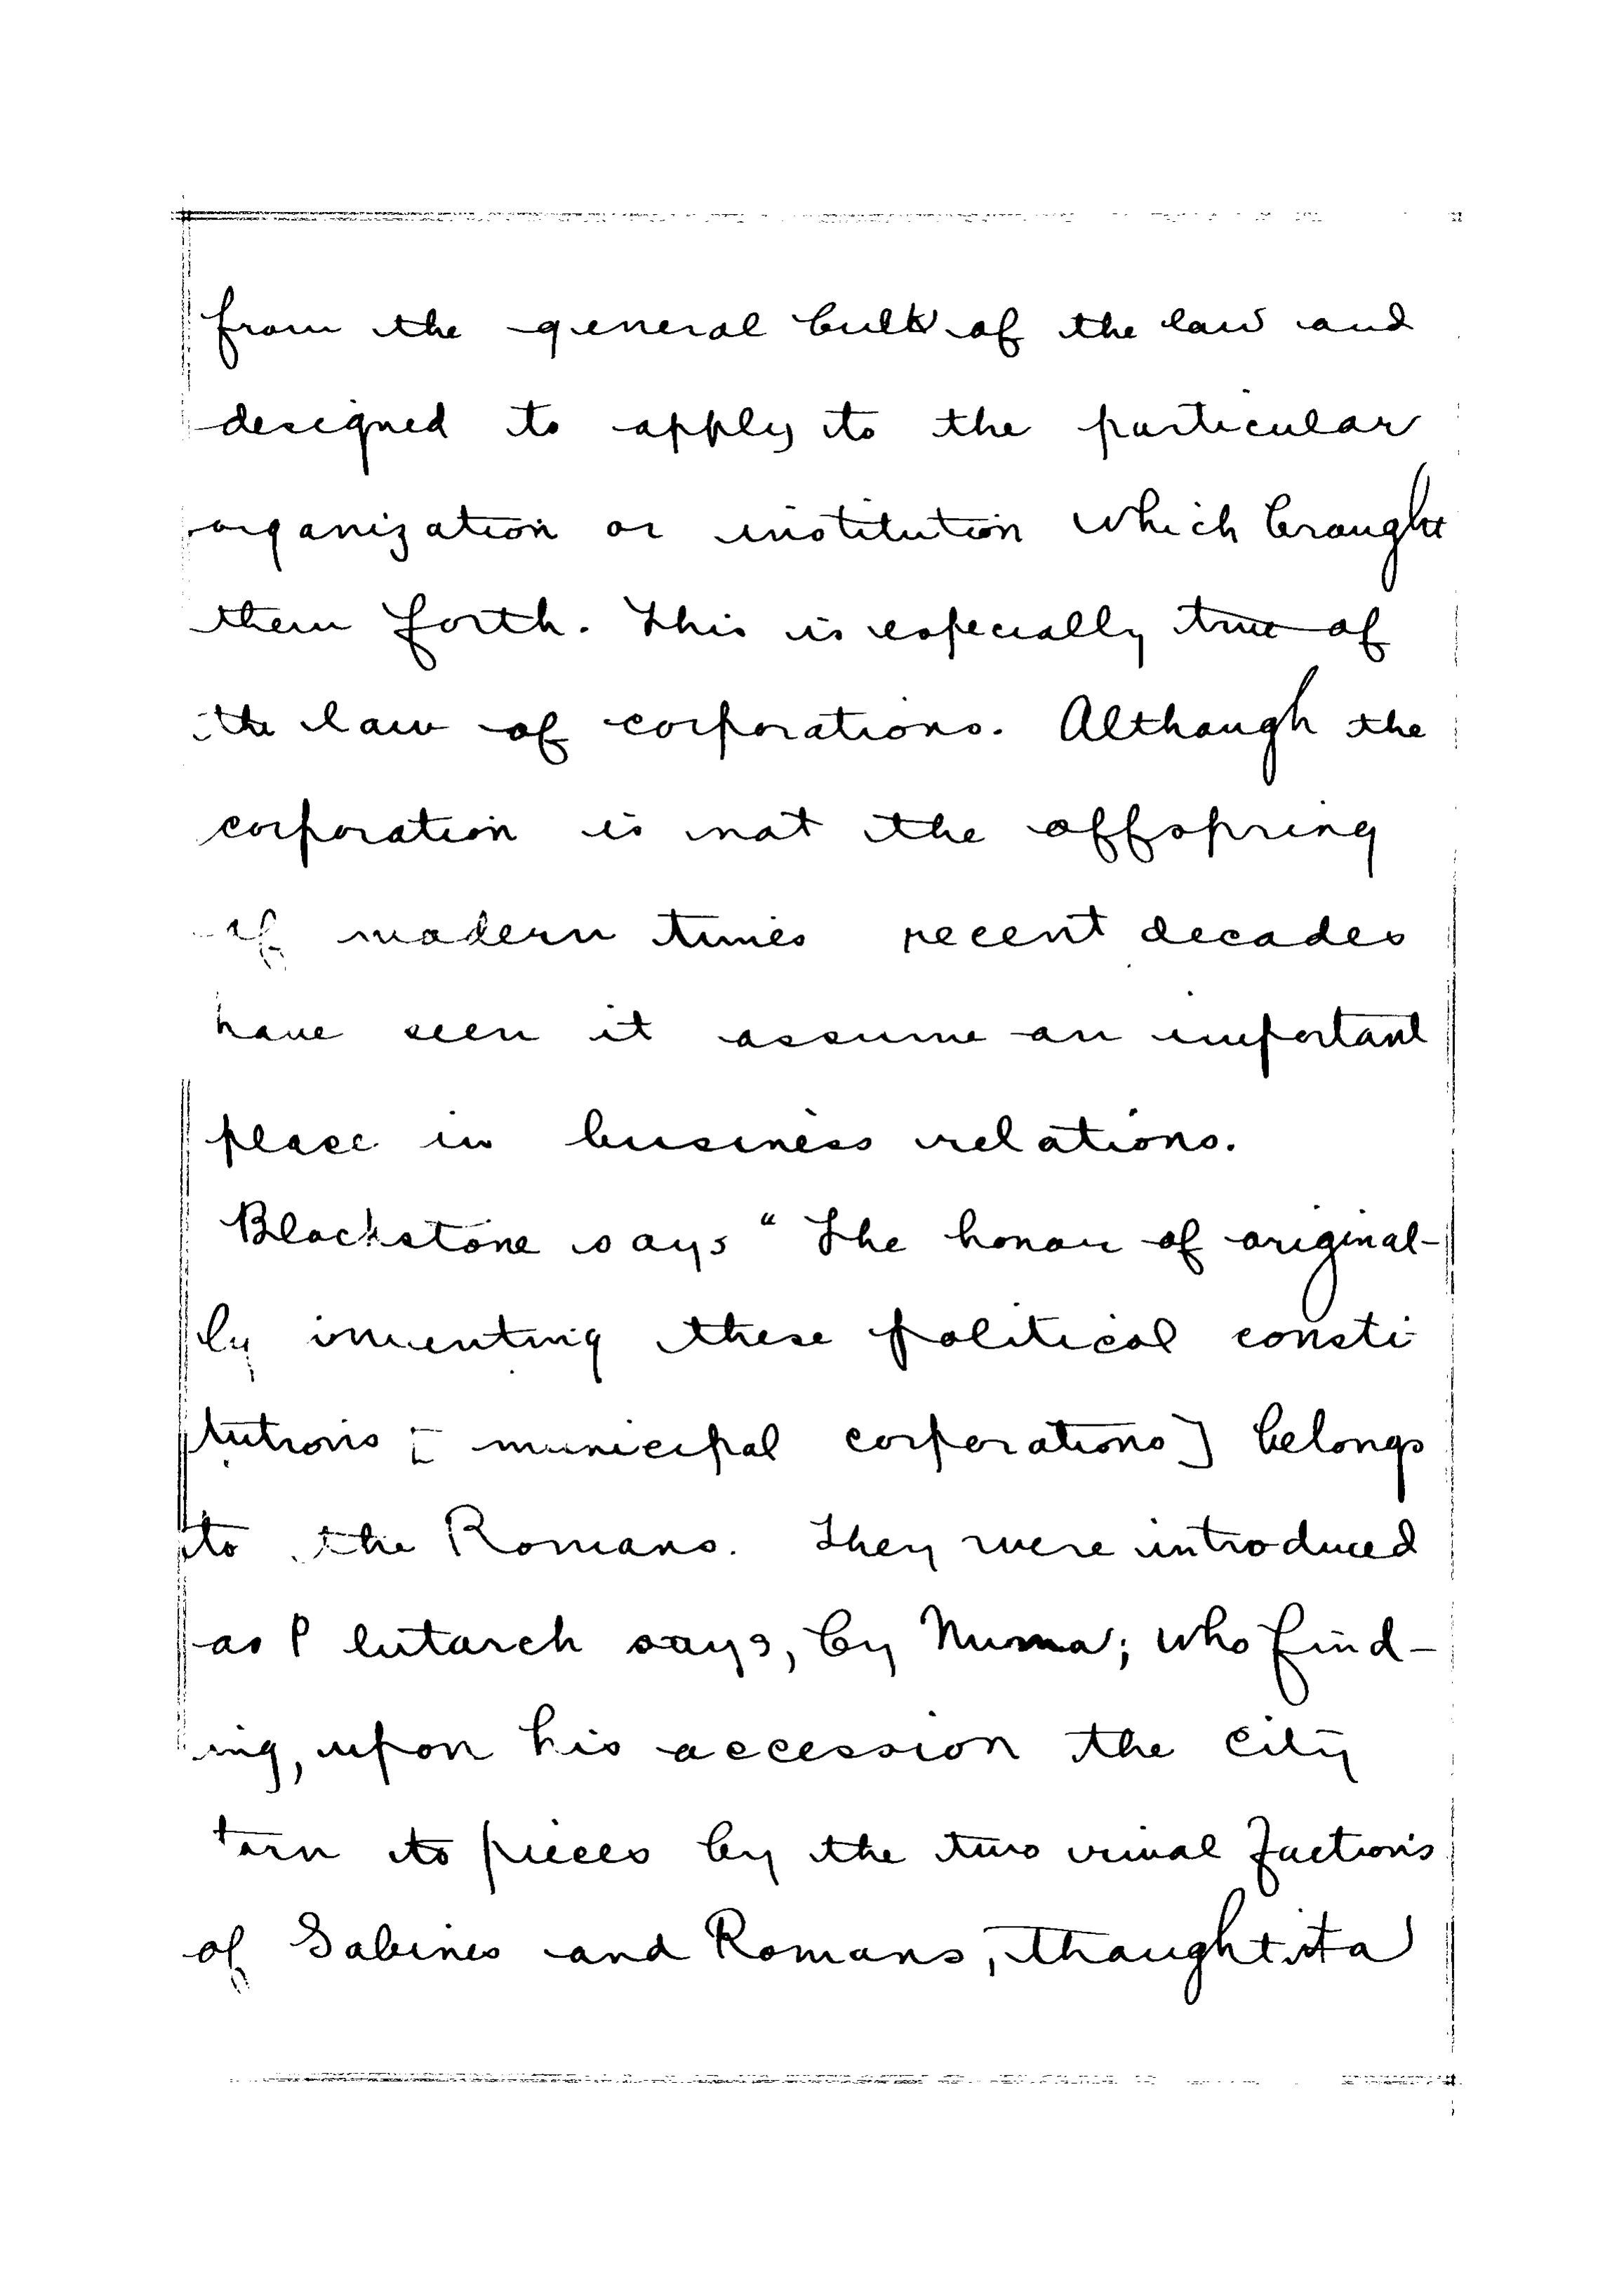 from the general bulk of the law and
designed to apply to the particular
organization or institution which brought
them forth. This is especially true of
the law of corporations. Although the
corporation is not the offspring
of modern times recent decades
have seen it assume an important
place in business relations.
Blackstone says "The honour of original-
ly inventing these political consti-
tutions [municipal corporations] belongs
to the Romans. They were introduced
as Plutarch says, by Numa; who find-
ing, upon his accession the city
torn to pieces by the two rival factions
of Sabines and Romans, thought it a